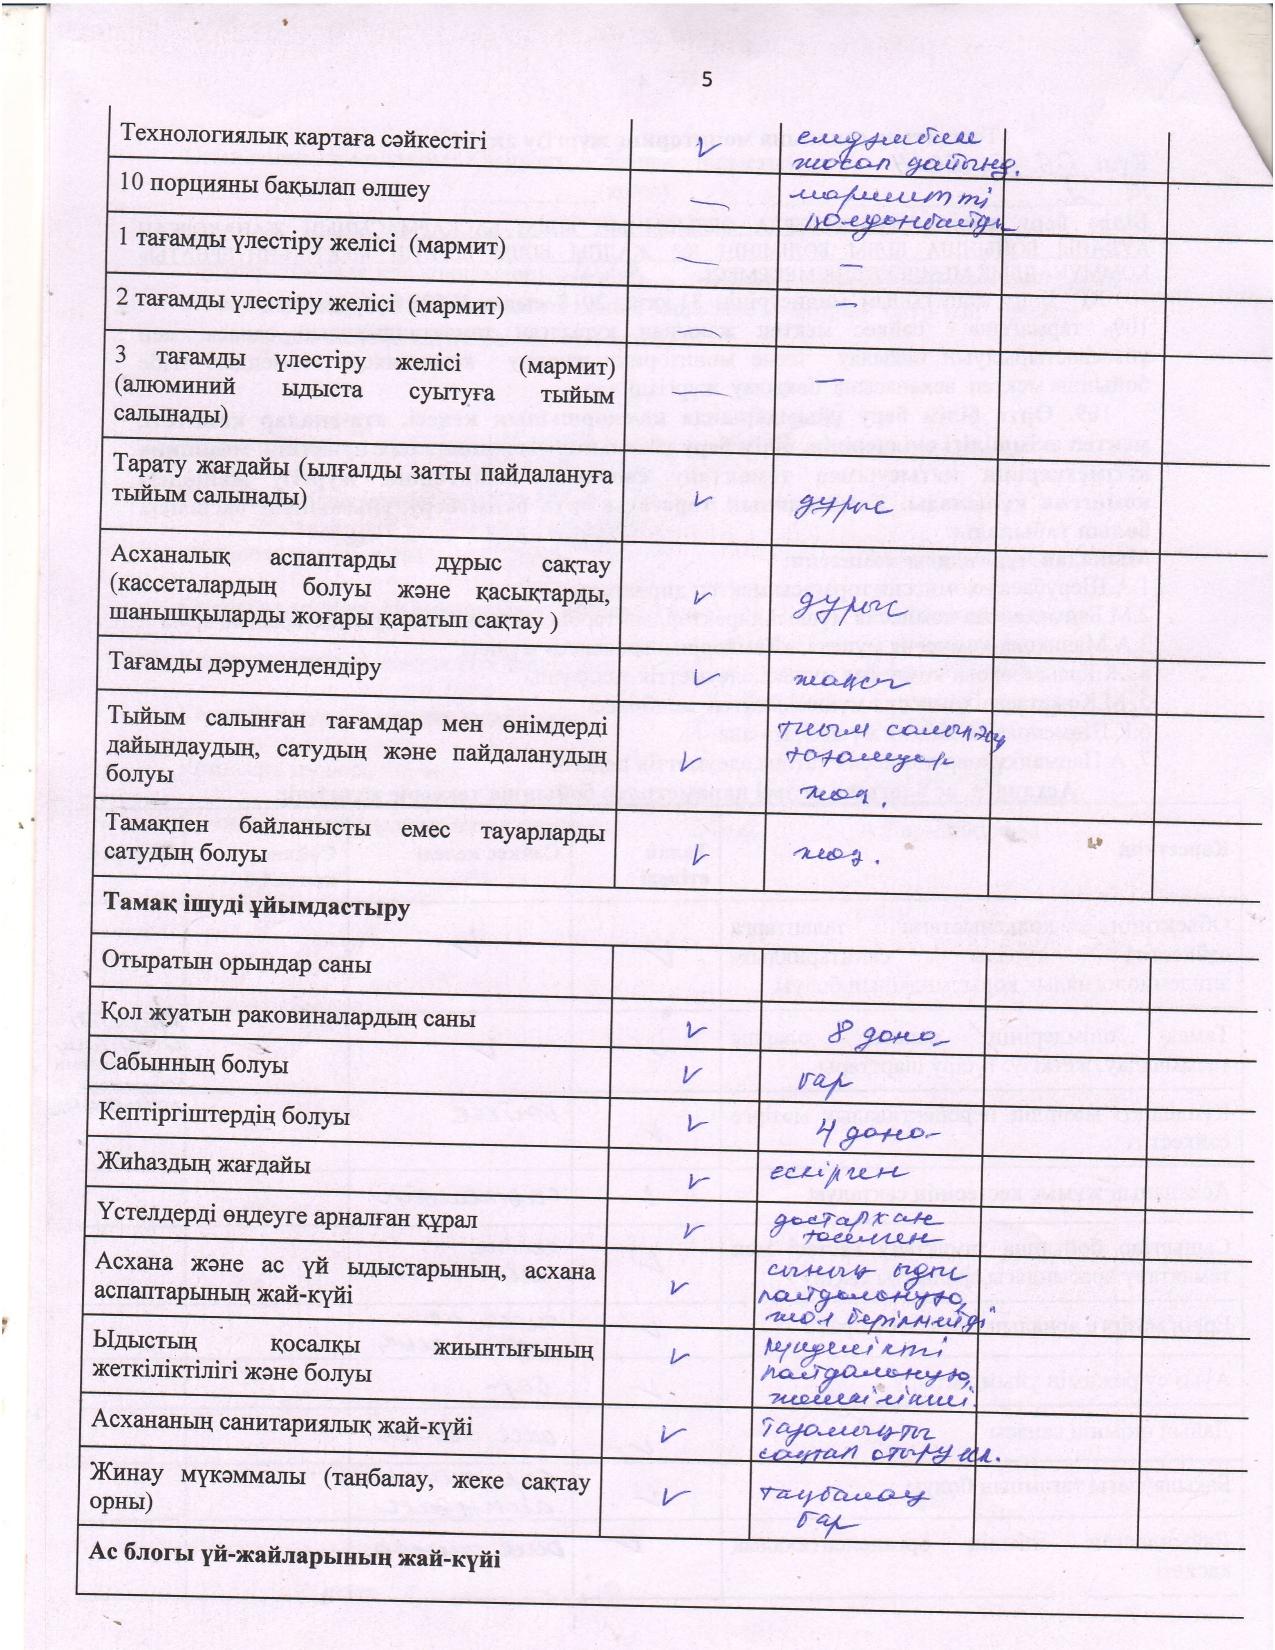 5
Технологиялық картаға сәйкестігі
жасап дайынд.
10 порцияны бақылап өлшеу
мармитті
қолданбайды
1 тағамды үлестіру желісі (мармит)
—
2 тағамды үлестіру желісі (мармит)
—
3 тағамды үлестіру желісі (мармит)
(алюминий ыдыста суытуға тыйым
салынады)
—
Тарату жағдайы (ылғалды затты пайдалануға
тыйым салынады)
дұрыс
Асханалық аспаптарды дұрыс сақтау
(кассеталардың болуы және қасықтарды,
шанышқыларды жоғары қаратып сақтау )
дұрыс
Тағамды дәрумендендіру
жақсы
Тыйым салынған тағамдар мен өнімдерді
дайындаудың, сатудың және пайдаланудың
болуы
тиым салынғ
тағамдар
жоқ.
Тамақпен байланысты емес тауарларды
сатудың болуы
жоқ.
Тамақ ішуді ұйымдастыру
Отыратын орындар саны
Қол жуатын раковиналардың саны
8 дана
Сабынның болуы
бар
Кептіргіштердің болуы
4 дана
Жиһаздың жағдайы
ескірген
Үстелдерді өңдеуге арналған құрал
дастархан
төселген
Асхана және ас үй ыдыстарының, асхана
аспаптарының жай-күйі
сынық ыдыс
пайдалануға
жол берілмейді
Ыдыстың қосалқы жиынтығының
жеткіліктілігі және болуы
күнделікті
пайдалануға
жеткілікті
Асхананың санитариялық жай-күйі
Тазалықты
сақтап отыру
Жинау мүкәммалы (таңбалау, жеке сақтау
орны)
таңбалау
бар
Ас блогы үй-жайларының жай-күйі